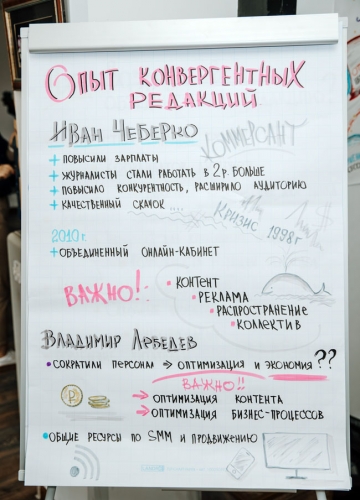 Опыт конвергентных
редакций
Иван Чеберко
Коммерсант
+ повысили зарплаты
+ журналисты стали работать в 2р. больше
+ повысило конкурентность, расширило аудиторию
+ качественный скачок....
Кризис 1998г
2010г.
+ объединенный онлайн-кабинет
Важно!:
• контент
• реклама
• распространение
• коллектив
Владимир Лебедев
• сократили персонал → оптимизация и экономия??
важно!!
→ оптимизация контента
→ оптимизация бизнес-процессов
• общие ресурсы по SMM и продвижению